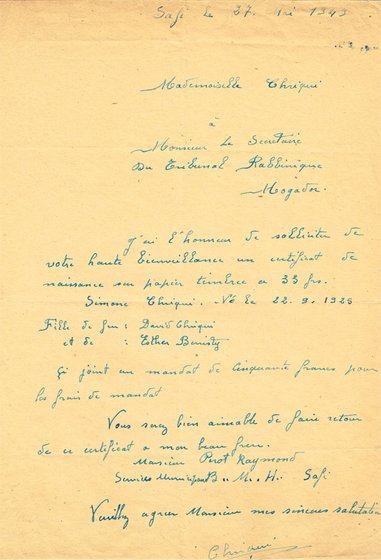 Safi le 27. Mai 1949
Mademoiselle Chriqui
à
Monsieur Le Secretaire
Du Tribunal Rabbinique
Mogador.
J'ai l'honneur de solliciter de
votre haute bienveillance un certificat de
naissance sur papier timbre a 35 frs.
Simone Chriqui. Né le 22.9.1928
Fille de feu : David Chriqui
et de : Esther Benisty
Ci joint un mandat de cinquante francs pour
les frais de mandat
Vous serez bien aimable de faire retour
de ce certificat a mon beau frere.
Monsieur Perot Raymond
Services Municipaux B. M. H. Safi
Veuillez agreer Monsieur mes sinceres salutations
Chriqui